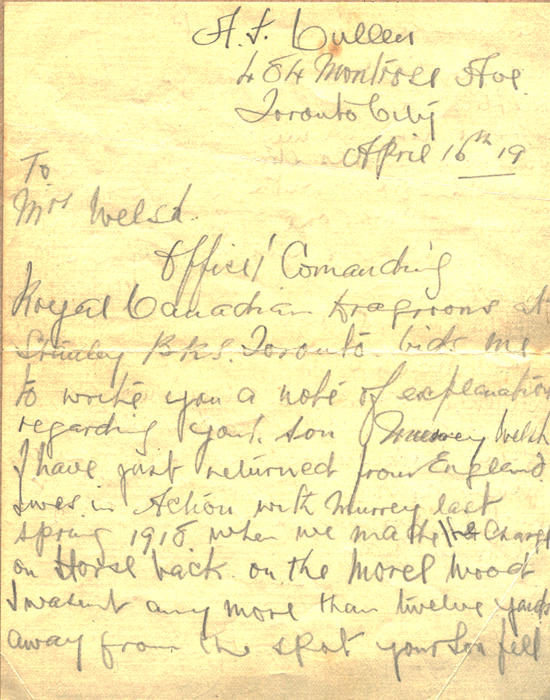 A. S. Cullen
484 Montrose Ave.
Toronto City
April 16th 19
To
Mrs Welsh.
Officer Comanding
Royal Canadian Dragoons at
Stanley BKS. Toronto. bids me
to write you a note of explanation
regarding your son Murrey Welsh
I have just returned from England
I was in Action with Murrey last
spring 1918 when we made the Charge
on Horse back on the Morel Wood
I wasent any more than twelve yards
away from the spot your Son fell